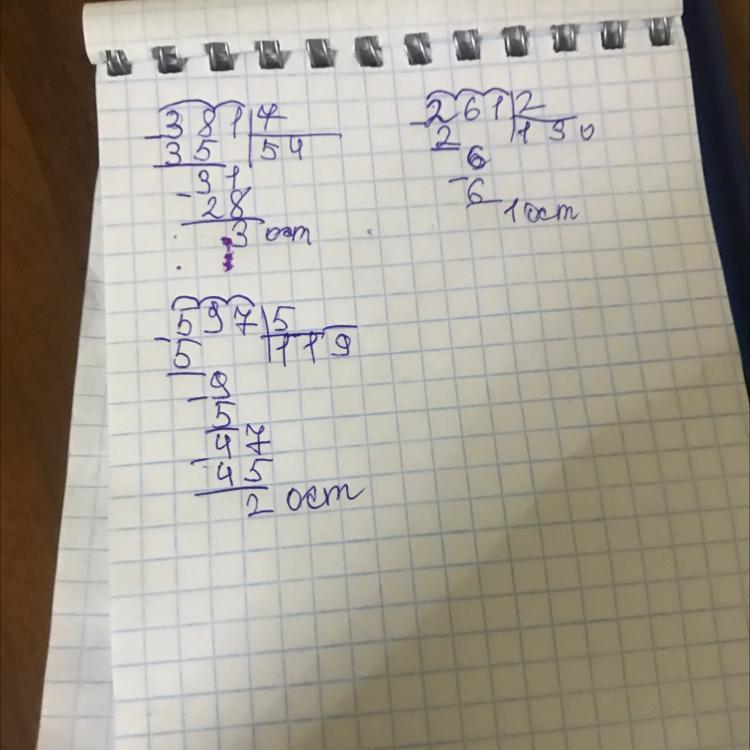 381 7
35 54
31
28
3 ост
261 2
2 130
6
6
1 ост
597 5
5 119
9
5
47
45
2 ост